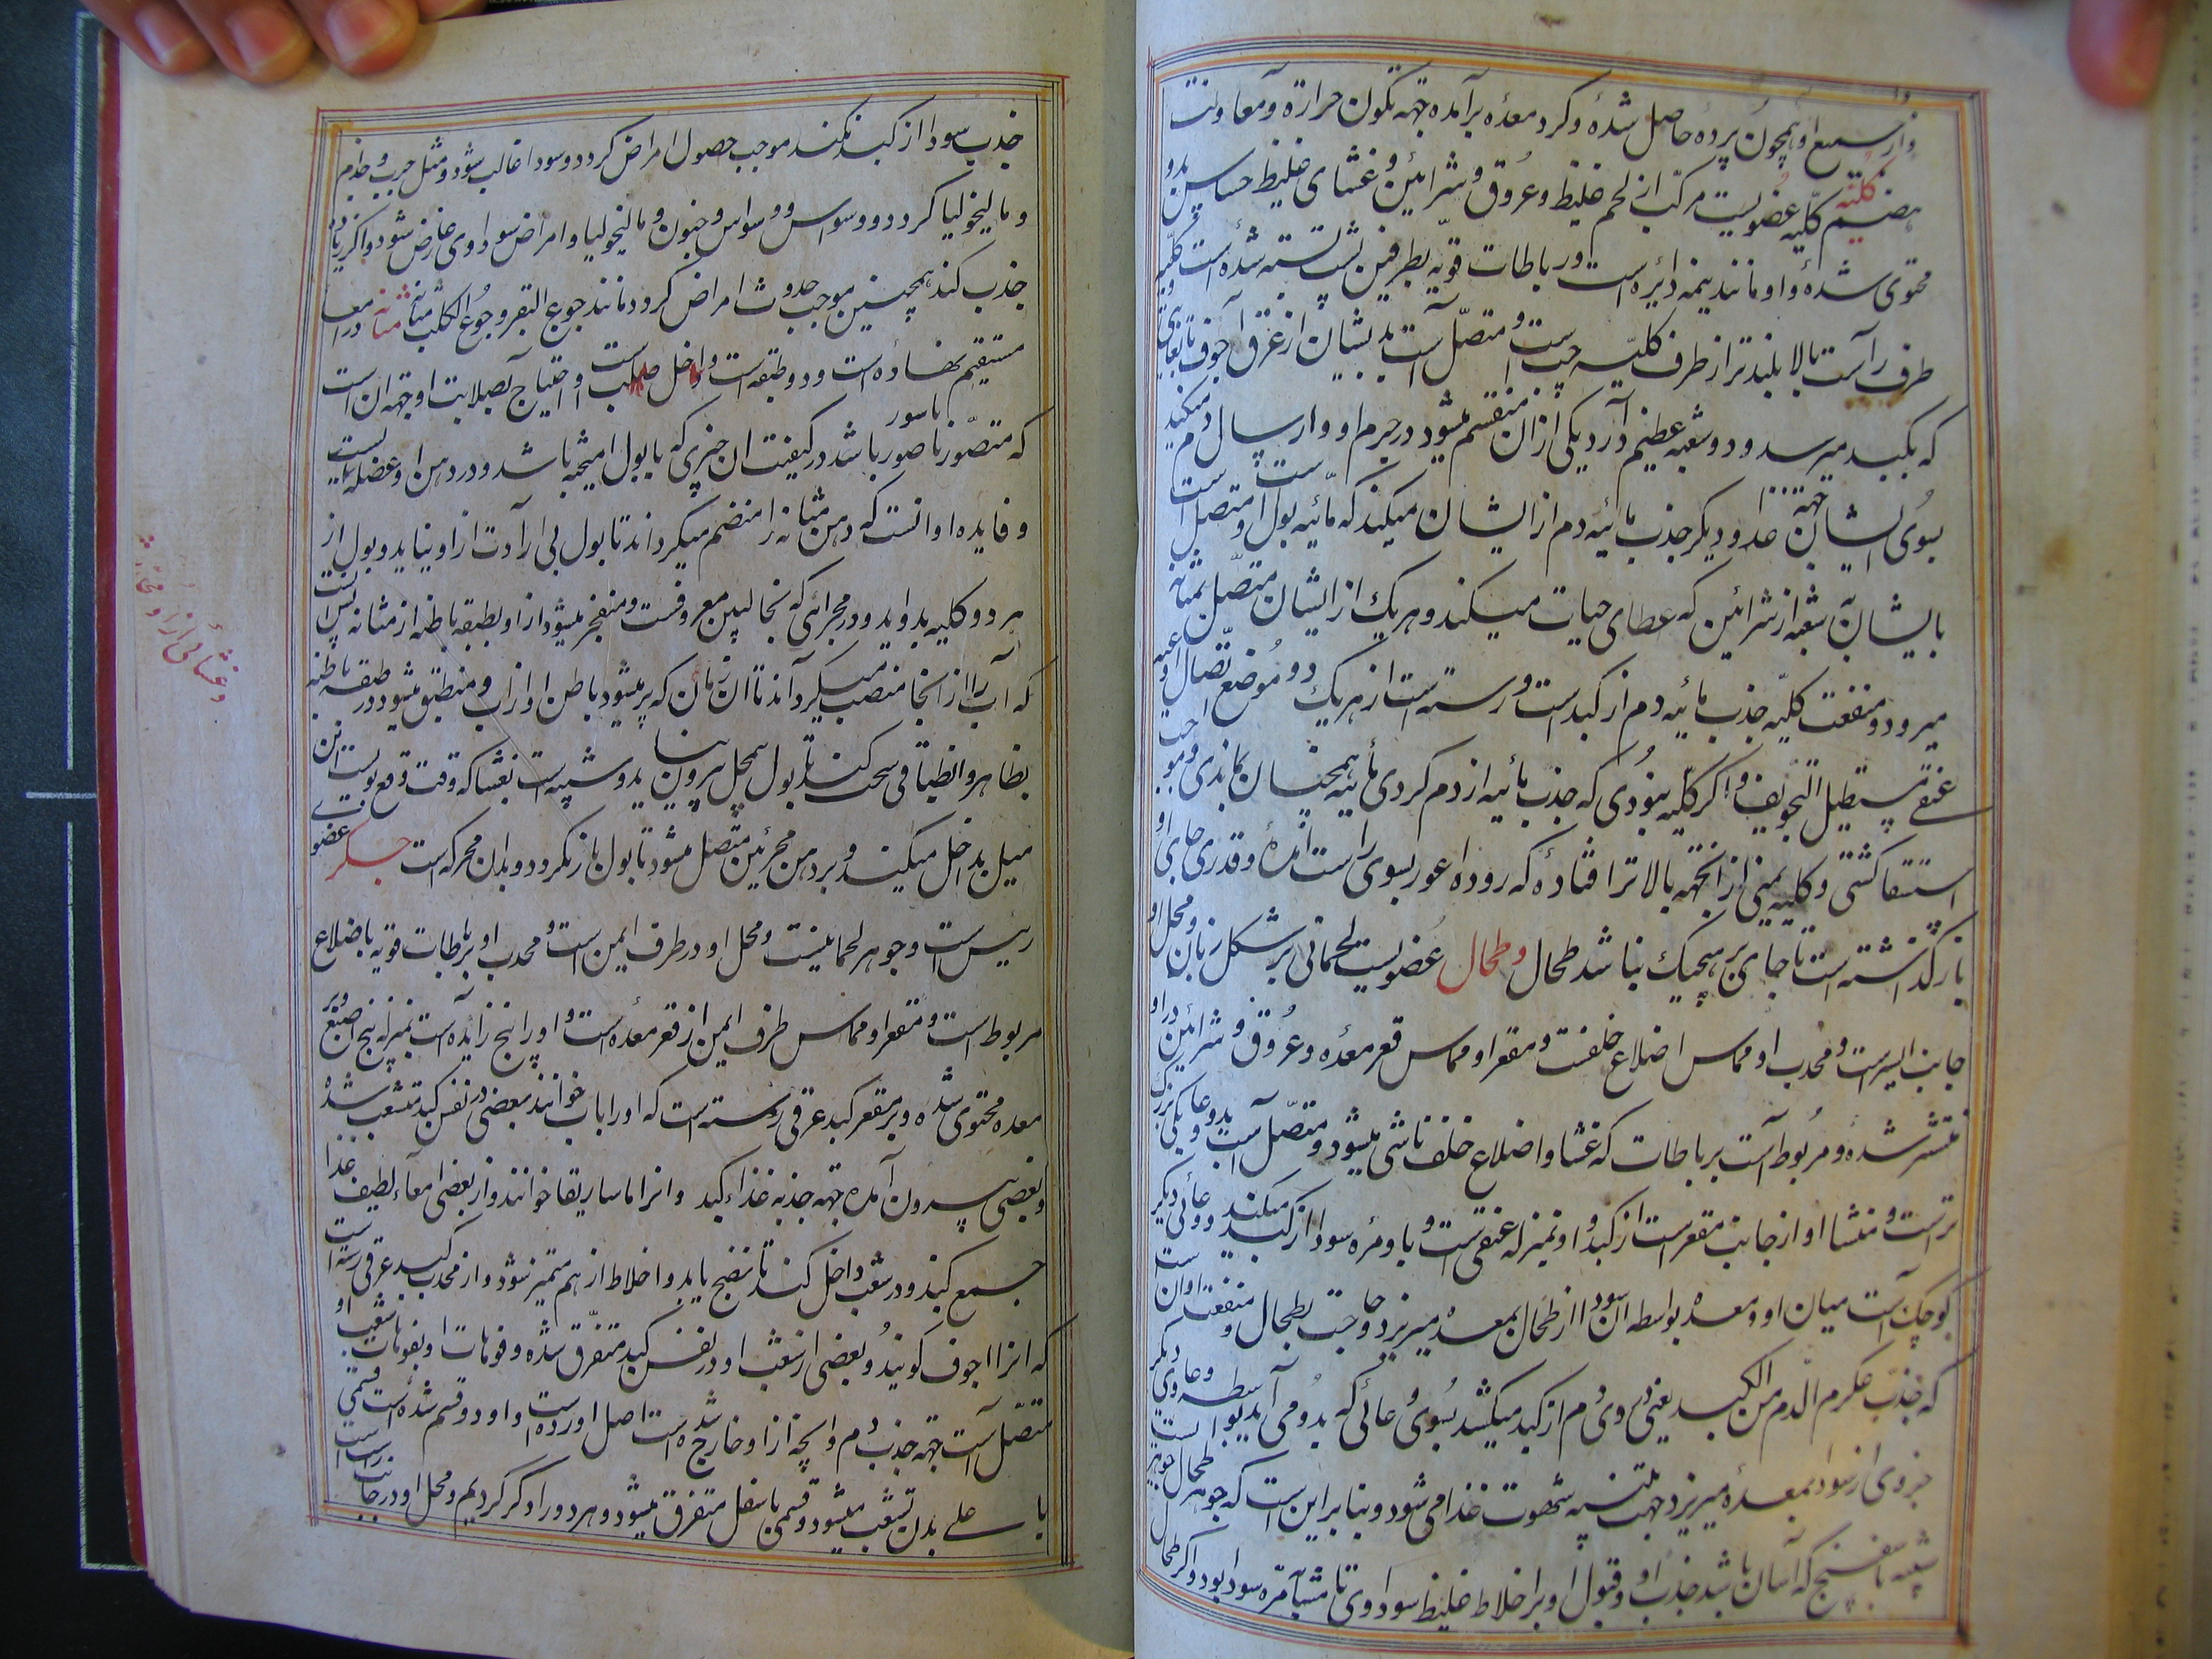 واز جمیع او همچون پرده حاصل شده و کرد معده برآمده جهه تکون حراره و معاونت
هضم کلیه کلیه عضویست مرکب از لحم غلیظ و عروق و شرائین و غشای غلیظ حساس بدو
محتوی شده و او مانند نیمه دائره است و رباطات قویه بطرفین پشت بسته شده است و کلیه
طرف راست بالا بلندتر از طرف کلیه چپ است و متصل است بدیشان از عرق اجوف
که بکبد میرسد و دو شعبه عظیم دارد یکی ازان منقسم میشود در جرم او و ارسال دم میکند
بسوی ایشان جهة غذا و دیگر جذب مائیه دم از ایشان میکند که مائیه بول است و متصل است
بایشان شعبه از شرائین که عطای حیات میکند و هر یک از ایشان متصل بمثانه
میرود و منفعت کلیه جذب مائیه دم از کبد است و رسته است از هر یک دو موضع اتصال او
عنقی مستطیل التجویف و اگر کلیه نبودی که جذب مائیه از دم کردی مائیه همچنان بماندی و موجب
استسقا کشتی و کلیه یمنی از انجهه بالاتر افتاده که روده اعور بسوی راست آمده و قدری جای او
باز گذاشته است تا جای بر هیچیک نباشد طحال و طحال عضویست لحمانی بر شکل زبان و محل او
جانب ایسر است و محدب او مماس اضلاع خلفست و مقعر او مماس قعر معده و عروق و شرائین در او
منتشر شده و مربوط است برباطات که غشا و اضلاع خلف ناشی میشود و متصل است بدو وعا یکی بزرک
تر است و منشا او از جانب مقعر است از کبد و او بمنزله عنقی است و باو مره سودا از کبد میکند و وعائی دیگر
کوچک است میان او و معده بواسطه ان سودا از طحال بمعده میریزد و حاجت بطحال و منفعت او ان است
که جذب عکرم الدم من الکبد یعنی دردی دم از کبد میکشد بسوی وعائی که بدو می آید بواسطه وعای دیگر
جزوی از سودا بمعده میریزد جهت تنبیه شهوت غذا می شود و بنابراین است که جوهر طحال
شبیه باسفنج که آسان باشد جذب او و قبول او بر اخلاط غلیظ سوداوی تا مره سودا بود و اگر طحال
جذب سودا از کبد نکند موجب حصول امراض کردد و سودا غالب شود و مثل جرب و جذام
و مالیخولیا کردد و وسواس و جنون و مالیخولیا و امراض سوداوی عارض شود و اگر زیاده
جذب کند همچنین موجب حدوث امراض کردد مانند جوع البقر و جوع الکلب مثانه مثانه در امعا
مستقیم نهاده است و دو طبقه است و داخل صلب است و احتیاج بصلابت او جهه ان است
که متضرر ناصور باسور باشد در کیفیت ان چیزی که با بول امیخته باشد و در دهن او عضله ایست
و فایده او انست که دهن مثانه را منضم میکرداند تا بول بی ارادت ازاو نیاید و بول از
هر دو کلیه بدو اید و در مجرائی که بحالبین معروفست و منفجر میشود ازاو بطبقه باطنه از مثانه پس
که آب را از انجا منصب میکرداند تا ان زمان که پر میشود باطن او از اب و منطبق میشود در طبقه باطنه
بظاهر و انطباقی سخت کند تا بول بیرون نیاید و شبیه است بغشا که وقت
میل بداخل میکند و بر دهن مجرئین متصل میشود تا بول باز نکردد و بدان محرکه است جکر عضو
رئیس است و جوهر لحمانیست و محل او در طرف ایمن است و محدب او برباطات قویه باضلاع
مربوط است و مقعر او مماس طرف ایمن از قعر معده است و اورا پنج زایده است بمنزله پنج اصبع و بر
معده محتوی شده و بر مقعر کبد عرقی رسته است که اورا باب خوانند بعضی در نفس کبد متشعب شده
و بعضی بیرون آمده جهه جذبه غذاء کبد و انرا ماساریقا خوانند و از بعضی امعاء لطیف غذا
جمع کند و در شعب داخل کند تا نضج یابد و اخلاط از هم متمیز شود و از محدب کبد عرقی رسته است
که انرا اجوف کویند و بعضی از شعب او در نفس کبد متفرق شده و فوهات او بفوهات شعب او
متصل است جهه جذب دم و انچه ازاو خارج شده است اصل اورده است و او دو قسم شده است قسمی
باعلی بدن متشعب میشود و قسمی باسفل متفرق میشود و هر دو را ذکر کردیم و محل او در جانب راست است